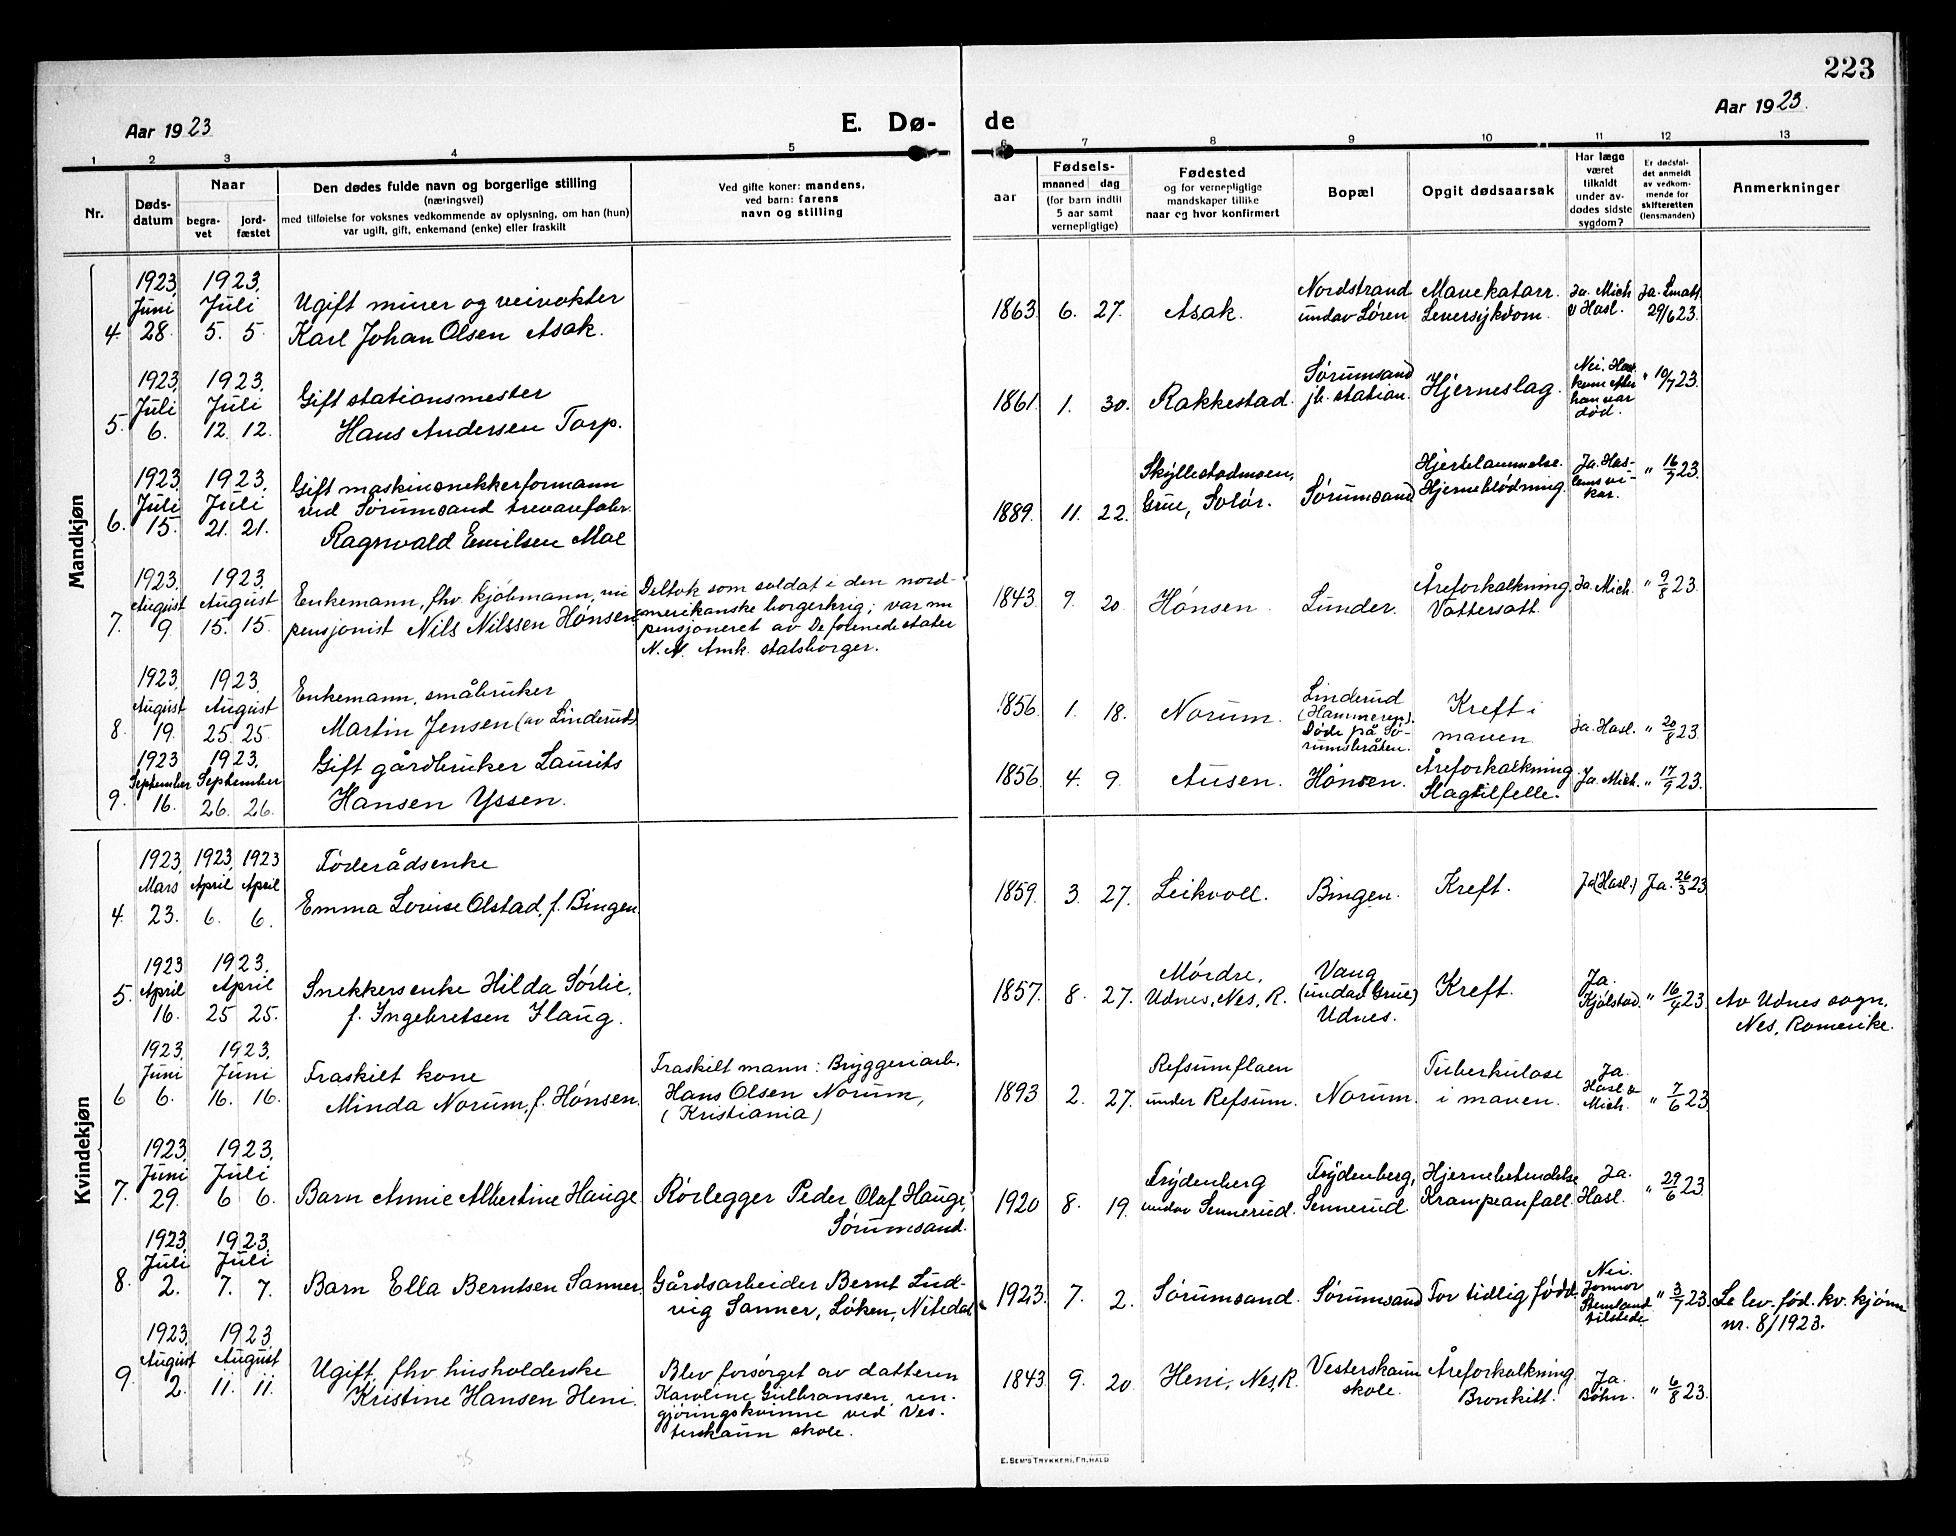 223
Aar 1923
E. Dø-
de
Aar 1923.
1 2 3 4 5 6 7 8 9 10 11 12 13
Nr.
Døds-
datum
Naar
begra-
vet
jord-
fæstet
Den dødes fulde navn og borgerlige stilling
(næringsvei)
med tilføielse for voksnes vedkommende av oplysning, om han (hun)
var ugift, gift, enkemand (enke) eller fraskilt
Ved gifte koner: mandens,
ved barn: farens
navn og stilling
Fødsels-
aar
maaned dag
(for barn indtil
5 aar samt
vernepligtige)
Fødested
og for vernepligtige
mandskaper tillike
naar og hvor konfirmert
Bopæl
Opgit dødsaarsak
Har læge
været
tilkaldt
under av-
dødes sidste
sygdom?
Er dødsfal-
det anmeldt
av vedkom-
mende for
skifteretten
(lensmanden)
Anmerkninger
Mandkjøn
4.
1923.
Juni
28.
1923.
Juli
5. 5.
Ugift murer og veivokter
Karl Johan Olsen Asak.
1863. 6. 27.
Asak.
Nordstrand
undav Søren
Mavekatarr.
Leversykdom.
Ja. Mich
v Hasl.
29/6 23.
5.
1923.
Juli
6.
1923.
Juli
12. 12.
Gift stationsmester
Hans Andersen Torp.
1861. 1. 30.
Rakkestad.
Sørumsand
jb. station.
Hjerneslag.
Nei. Hasl.
kom efter
han var
død.
" 10/7 23.
6.
1923.
Juli
15.
1923.
Juli
21. 21.
Gift maskinsnekkerformann
ved Sørumsand trevarefabr.
Ragnvald Emilsen Moe
1889. 11. 22.
Skyllestadmoen,
Grue, Solør.
Sørumsand
Hjertelammelse.
Hjerneblødning.
Ja. Has-
lums vi-
kar.
" 16/7 23.
7.
1923.
August
9.
1923.
August
15. 15.
Enkemann, fhv. kjøbmann, nu
pensjonist Nils Nilssen Hønsen.
Deltok som soldat i den nord-
amerikanske borgerkrig; var nu
pensjoneret av De forenede stater
N. A. Amk. statsborger.
1843. 9. 20.
Hønsen.
Lunder.
Åreforkalkning.
Vattersott.
Ja. Mich.
" 9/8 23.
8.
1923.
August
19.
1923.
August
25. 25.
Enkemann, småbruker
Martin Jensen (av Linderud)
1856. 1. 18.
Norum.
Linderud
(Hammeren).
Døde på Sø-
rumsbråten.
Kreft i
maven.
Ja. Hasl.
" 20/8 23.
9.
1923
September
16.
1923.
September
26. 26.
Gift gårdbruker Laurits
Hansen Yssen.
1856. 4. 9.
Ausen.
Hønsen.
Åreforkalkning.
Slagtilfelle.
Ja. Mich.
" 17/9 23.
Kvindekjøn
4.
1923.
Mars
23.
1923.
April
6.
1923
April
6.
Føderådsenke
Emma Lovise Olstad, f. Bingen.
1859. 3. 27.
Leikvoll.
Bingen.
Kreft.
Ja (Hasl.)
Ja. 26/3 23
5.
1923
April
16.
1923.
April
25 25.
Snekkersenke Hilda Sørlie,
f. Ingebretsen Ilaug.
1857. 8. 27.
Mørdre,
Udnes, Nes, R.
Vang
(undav Grue)
Udnes.
Kreft.
Ja.
Kjølstad.
" 16/4 23
Av Udnes sogn,
Nes, Romerike.
6
1923.
Juni
6.
1923.
Juni
16. 16.
Fraskilt kone
Minda Norum, f. Hønsen.
Fraskilt mann: Bryggeriarb.
Hans Olsen Norum,
(Kristiania)
1893 2. 27.
Refsumflaen
under Refsum.
Norum.
Tuberkulose
i maven.
Ja.
Hasl. v
Mich.
" 7/6 23
7.
1923.
Juni
29.
1923.
Juli
6 6.
Barn Annie Albertine Hauge
Rørlegger Peder Olaf Hauge,
Sørumsand.
1920 8. 19.
Frydenberg
undav Sennerud.
Frydenberg,
Sennerud.
Hjernebetendelse
Krampeanfall.
Ja.
Hasl.
" 29/6 23.
8.
1923.
Juli
2.
1923.
Juli
7. 7.
Barn Ella Berntsen Sanner.
Gårdsarbeider Bernt Lud-
vig Sanner, Løken, Nitedal
1923. 7. 2.
Sørumsand.
Sørumsand
For tidlig fødd.
Nei.
Jormor
tilstede
" 3/7 23.
Se lev. fød. kv. kjønn
nr. 8/1923.
9.
1923.
August
2.
1923
August
11. 11.
Ugift, fhv. husholderske
Kristine Hansen Heni.
Blev forsørget av datteren
Karoline Gulbransen, ren-
gjøringskvinne ved Ves-
terskaun skole.
1843. 9. 20.
Heni, Nes, R.
Vesterskaun
skole.
Åreforkalkning.
Bronkitt.
Ja.
Bøhn.
" 6/8 23.
E. SEM'S TRYKKERI, FR.HALD